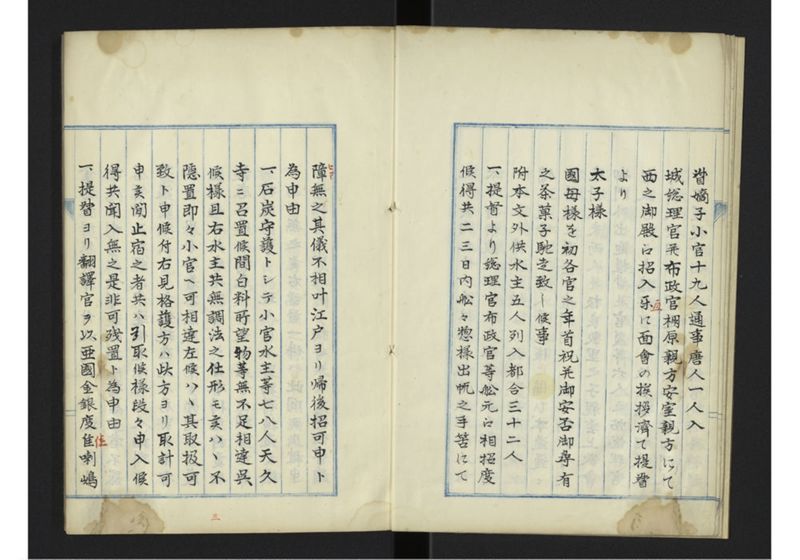 督嫡子小官十九人通事唐人一人入
城総理官并布政官棚原親方安室親方にて
西之御殿江招入互に面會の挨拶済て提督
より
太子様
國母様を初各官之年首祝并御安否御尋有
之茶菓子馳走致し候事
附本文外供水主五人列入都合三十二人
一、提督より総理官布政官等舩元江相招度
候得共二三日内舩々惣様出帆之手筈にて
障無之其儀不相叶江戸ヨリ帰後招可申ト
為申由
一、石炭守護トシテ小官水主等七八人天久
寺ニ召置候間自料所望物等無不足相達呉
候様且右水主共無調法之仕形モ亥ハヽ不
隠置即々小官ヘ可相達左候ハヽ其取扱可
致ト申候付右見格護方ハ此方ヨリ取計可
申亥間止宿之者共ハ引取候様段々申入候
得共聞入無之是非可残置ト為申由
一、提督ヨリ翻譯官ヲ以亜國金銀度佳喇嶋